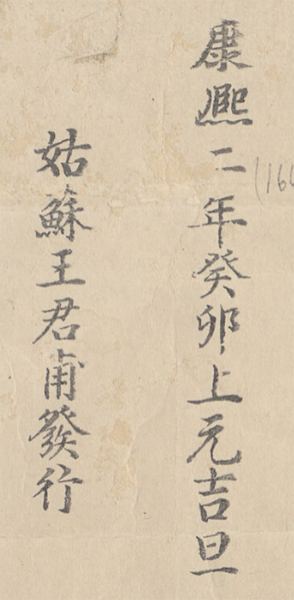 康熙二年癸卯上元吉旦
姑蘇王君甫發行